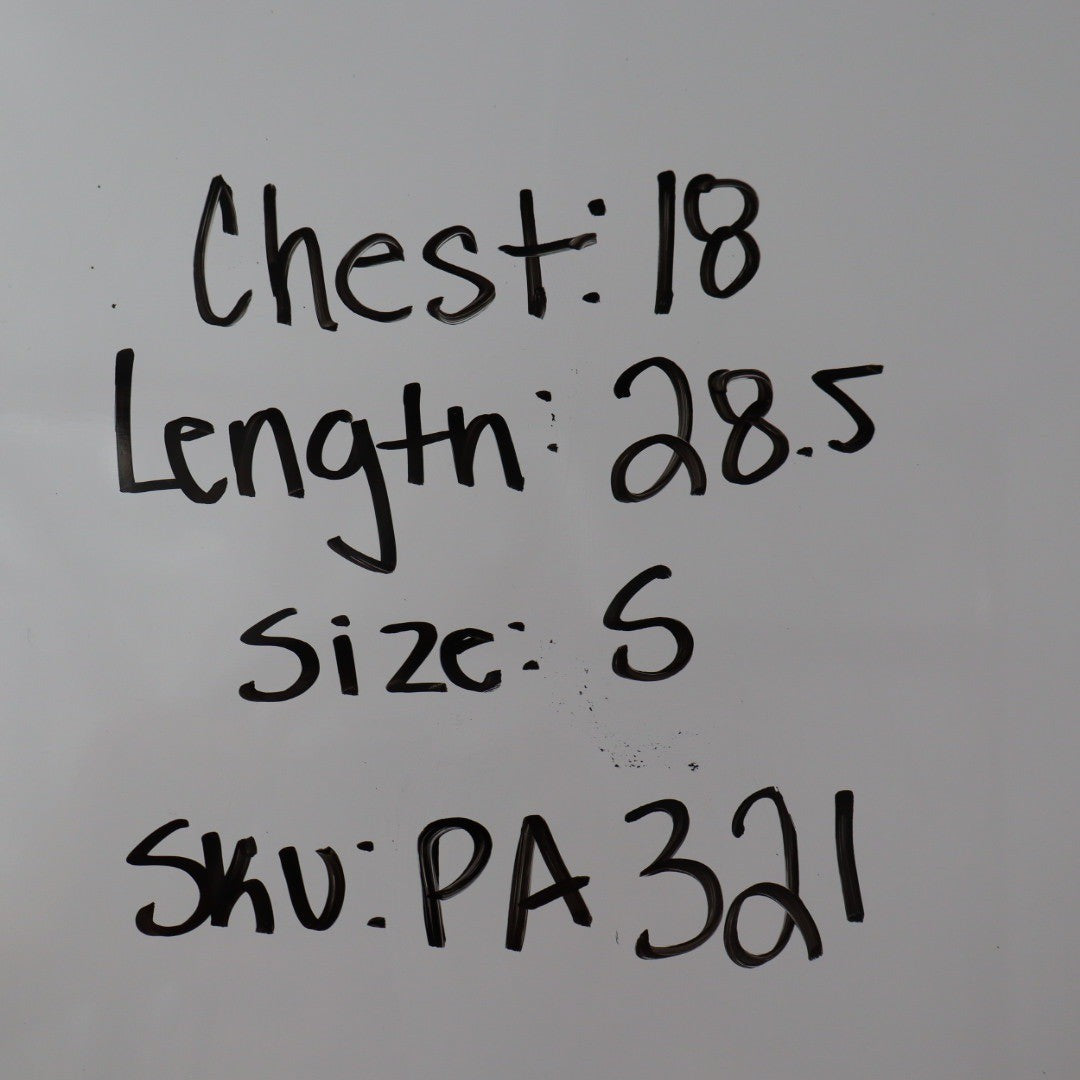 Chest: 18
Length: 28.5
Size: S
SKU: PA 321